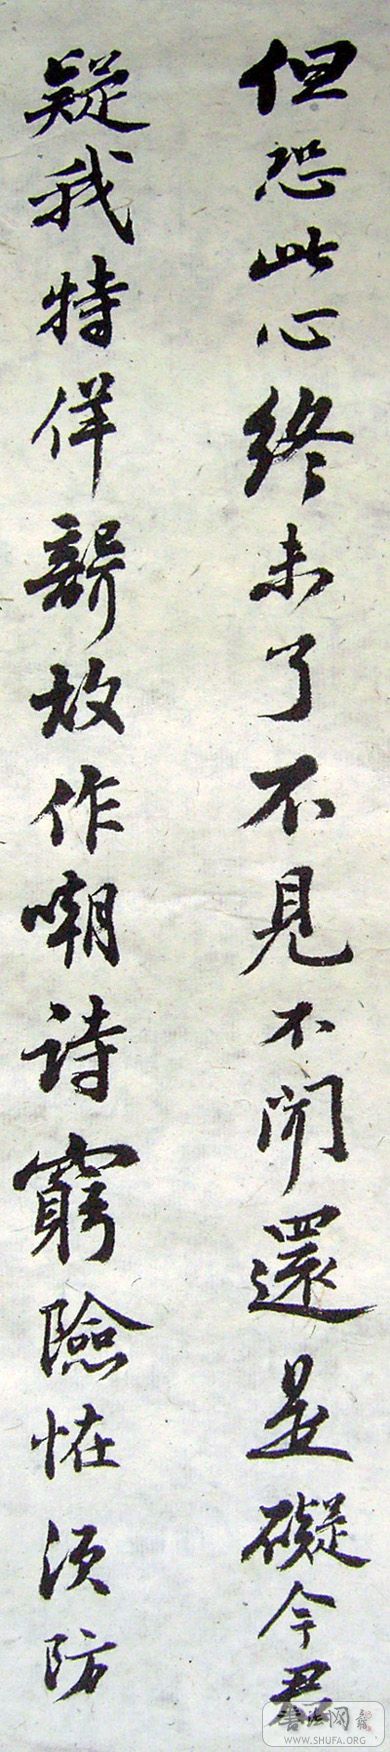 但恐此心終未了不見不聞還是礙今君
疑我特佯聾故作嘲詩窮險恠須防
書法网
WWW.SHUFA.ORG